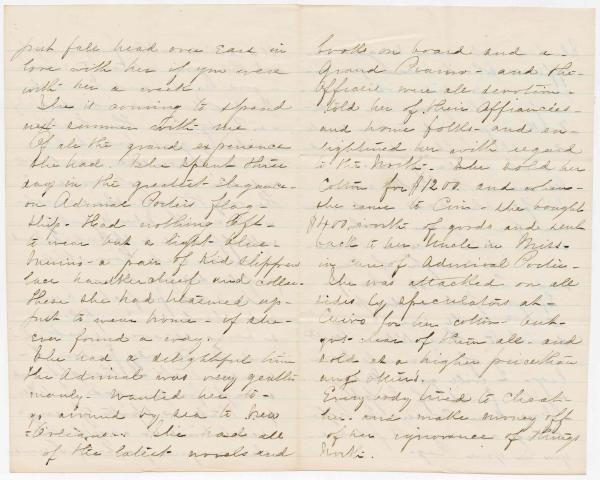 just fall head over ears in
love with her if you were
with her a week.
She is coming to spend
next summer with me
Of all the grand experience
she had. She spent three
days in the greatest Elegance-
on Admiral Porters flag-
ship. Had nothing left-
to wear but a light blue-
a pair of kid slippers
lace handkerchief and collar
these she had up-
just to wear home - if she-
ever found a way.
She had a delightful time
the Admiral was very gentle
manly - wanted her to-
go around by sea to New
Orleans - She had all
of the latest novels and
books on board and a-
Grand Piano - and the-
officers were all devotion -
told her of their Affiancies-
and home folks - and en-
lightened her with regard
to the North - She sold her
Cotton for $1200. and when-
she came to Cin - she bought
$400, worth of goods and sent
back to her Uncle in Miss-
in care of Admiral Porter -
She was attacked on all
sides by speculators at-
Cairo for her cotton - but-
got clear of them all - and
sold at a higher price than
any others.
Every body tried to cheat-
her - and make money off
of her ignorance of things
North.